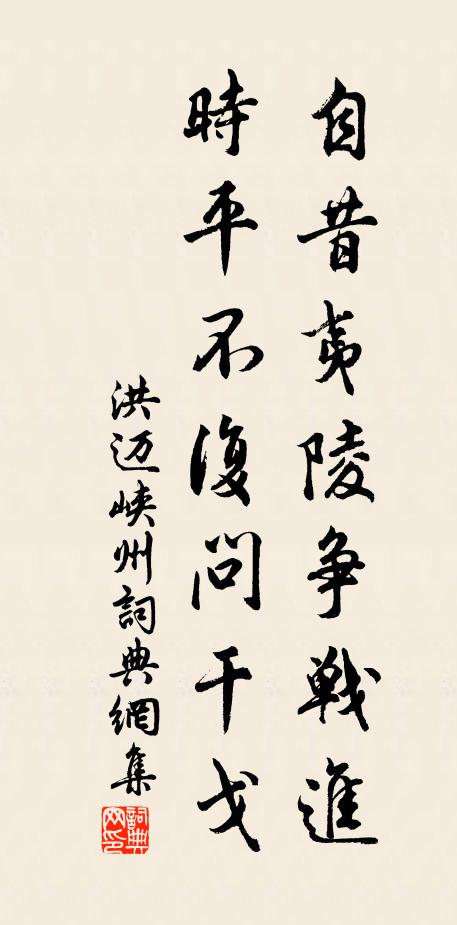 自昔夷陵争戰進
時平不復問干戈
洪迈峡州詞典網集
詞典网印